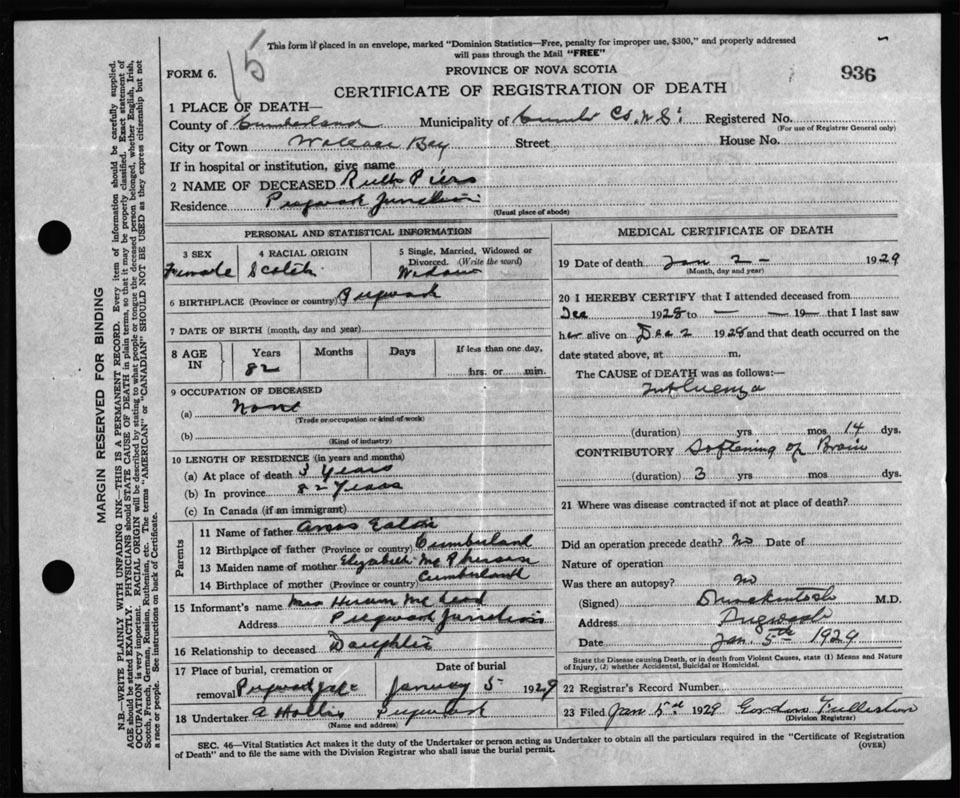 This form if placed in an envelope, marked "Dominion Statistics—Free, penalty for improper use, $300," and properly addressed
will pass through the Mail "FREE"
FORM 6.
15
PROVINCE OF NOVA SCOTIA
936
CERTIFICATE OF REGISTRATION OF DEATH
1 PLACE OF DEATH—
County of Cumberland Municipality of Cumb Co. N.S. Registered No.
(For use of Registrar General only)
City or Town Wallace Bay Street House No.
If in hospital or institution, give name
2 NAME OF DECEASED Ruth Piers
Residence Pugwash Junction
(Usual place of abode)
PERSONAL AND STATISTICAL INFORMATION
3 SEX
Female
4 RACIAL ORIGIN
Scotch
5 Single, Married, Widowed or
Divorced. (Write the word)
Widow
6 BIRTHPLACE (Province or country) Pugwash
7 DATE OF BIRTH (month, day and year)
8 AGE IN
Years Months Days If less than one day,
82 hrs. or min.
9 OCCUPATION OF DECEASED
(a) None
(Trade or occupation or kind of work)
(b)
(Kind of industry)
10 LENGTH OF RESIDENCE (in years and months)
(a) At place of death 3 Years
(b) In province 82 Years
(c) In Canada (if an immigrant)
Parents
11 Name of father Amos Eaton
12 Birthplace of father (Province or country) Cumberland
13 Maiden name of mother Elizabeth McPherson
14 Birthplace of mother (Province or country) Cumberland
15 Informant's name Mrs Hiram McLeod
Address Pugwash Junction
16 Relationship to deceased Daughter
17 Place of burial, cremation or Date of burial
removal Pugwash January 5 1929
18 Undertaker A Hollis Pugwash
(Name and address)
MEDICAL CERTIFICATE OF DEATH
19 Date of death Jan 2 - 1929
(Month, day and year)
20 I HEREBY CERTIFY that I attended deceased from
Dec 1928 to — — 19— that I last saw
her alive on Dec 2 1928 and that death occurred on the
date stated above, at m.
The CAUSE of DEATH was as follows:—
Influenza
(duration) yrs mos 14 dys.
CONTRIBUTORY Softening of Brain
(duration) 3 yrs mos dys.
21 Where was disease contracted if not at place of death?
Did an operation precede death? No Date of
Nature of operation
Was there an autopsy? No
(Signed) M.D.
Address Pugwash
Date Jan. 5th 1929
State the Disease causing Death, or in death from Violent Causes, state (1) Means and Nature
of Injury, (2) whether Accidental, Suicidal or Homicidal.
22 Registrar's Record Number
23 Filed Jan 5th 1929 Gordon Fullerton
(Division Registrar)
SEC. 46—Vital Statistics Act makes it the duty of the Undertaker or person acting as Undertaker to obtain all the particulars required in the "Certificate of Registration
of Death" and to file the same with the Division Registrar who shall issue the burial permit.
(OVER)
MARGIN RESERVED FOR BINDING
N.B.—WRITE PLAINLY WITH UNFADING INK—THIS IS A PERMANENT RECORD. Every item of information should be carefully supplied.
AGE should be stated EXACTLY. PHYSICIANS should STATE CAUSE OF DEATH in plain terms, so that it may be properly classified. Exact statement of
OCCUPATION is very important. RACIAL ORIGIN will be described by stating to what people or tongue the deceased person belonged, whether English, Irish,
Scotch, French, German, Russian, Ruthenian, etc. The terms "AMERICAN" or "CANADIAN" SHOULD NOT BE USED as they express citizenship but not
a race or people. See instructions on back of Certificate.